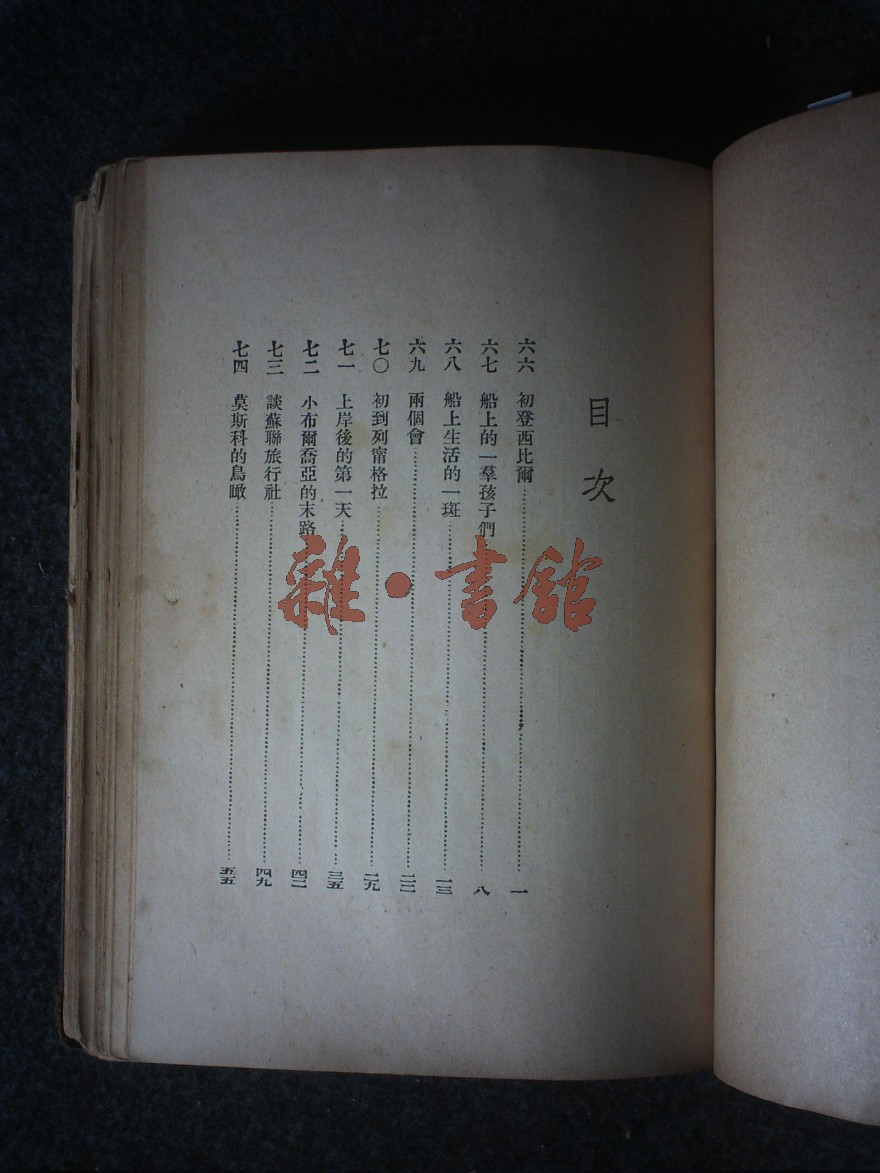 目次
六六 初登西比爾…………一
六七 船上的一羣孩子們…………八
六八 船上生活的一斑…………一三
六九 兩個會…………二二
七〇 初到列甯格拉…………二九
七一 上岸後的第一天…………三五
七二 小布爾喬亞的末路…………四二
七三 談蘇聯旅行社…………四九
七四 莫斯科的鳥瞰…………五五
雜·書館